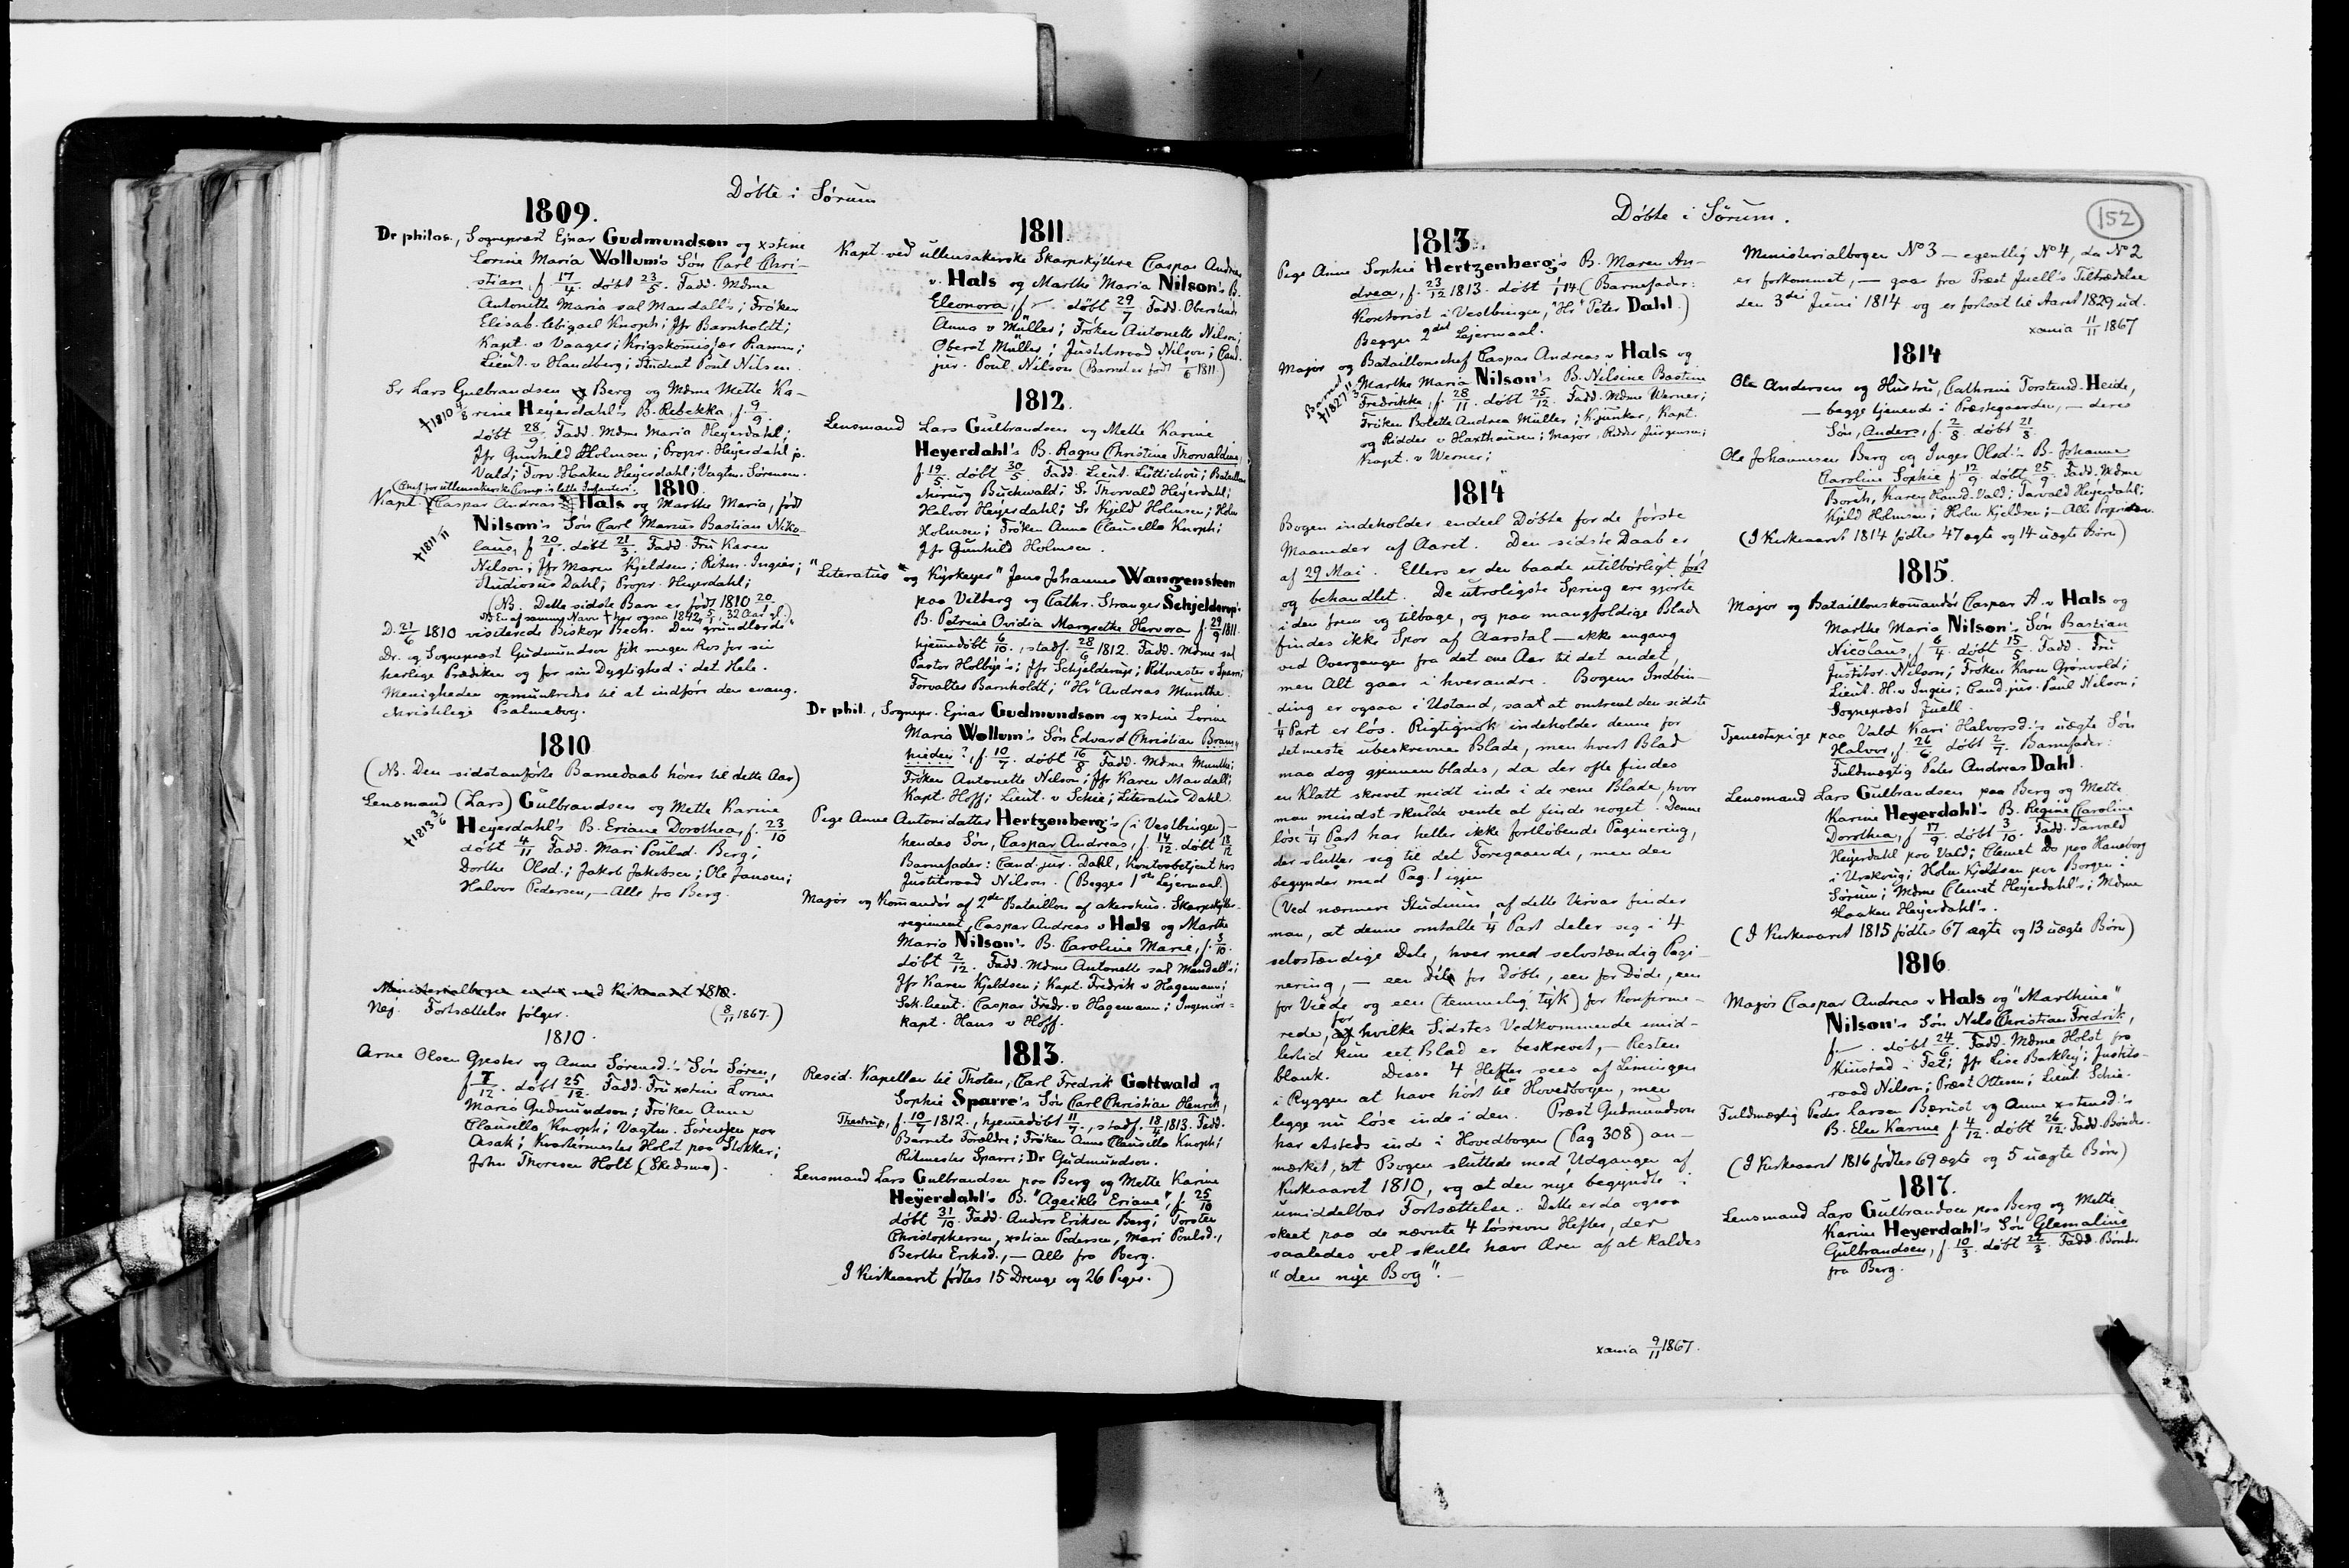 Döbte i Sörum
1809.
Dr philos., Sognepræst Ejnar Gudmundson og xstine
Lorine Maria Wollum's Sön Carl Chri-
stian, f. 17/4. döbt 23/5. Fadd. Mdme
Antonette Maria sal Mandall's; Fröken
Elisab. Abigael Knoph; Jfr Barnholdt;
Kapt. v Vaager; Krigskommisjær Ramm;
Lieut. v Handberg; Student Poul Nilsen.
Sr Lars Gulbrandsen Berg og Mdme Mette Ka-
rine Heyerdahl's B. Rebekka, f. 9/9.
†1810 4/8
döbt 28/9. Fadd. Mdme Maria Heyerdahl;
Jfr Gunhild Holmsen; Propr. Heyerdahl p.
Vald; Forv. Haaken Heyerdahl; Vagtm. Sörensen.
1810.
(Chef for ullensakerske Comp. i lette Infanteri.
Kapt. Caspar Andreas v Hals og Marthe Maria, född
Nilson's Sön Carl Marius Bastian Niko-
laus, f. 20/1. döbt 21/3. Fadd. Fru Karen
†1811 /11
Nilson; Jfr Maren Kjeldsen; Ritm. Ingier;
Studiosus Dahl; Propr. Heyerdahl;
(NB. Dette sidste Barn er född 1810 20/1.
NB En af samme Navn † her ogsaa 1842 5/5, 32 Aar gl.)
D. 21/6 1810 visiterede Biskop Bech. Den "grundlærde"
Dr. og Sognepræst Gudmundson fik megen Ros for sin
herlige Prædiken og for sin Dygtighed i det Hele.
Menigheden opmuntredes til at indföre den evang.
christelige Psalmebog.
1810
(NB. Den sidstanförte Barnedaab hörer til dette Aar)
Lensmand (Lars) Gulbrandsen og Mette Karine
Heyerdahl's B. Eriane Dorothea, f. 23/10
†1813 3/6
döbt 4/11 Fadd. Mari Poulsd. Berg;
Dorthe Olsd.; Jakob Jakobsen; Ole Jansen;
Halvor Pedersen, — Alle fra Berg.
Ministerialbogen ender med Kirkeaaret 1810.
Nej. Fortsættelse fölger. (8/11 1867.)
1810.
Arne Olsen Gjester og Anne Sörensd.'s Sön Sören,
f. 7/12. döbt 25/12. Fadd. Fru xstine Lorine
Maria Gudmundson; Fröken Anne
Clausella Knoph; Vagtm. Sörensen paa
Asak; Kvartermester Holst paa Slokker;
John Thoresen Holt (Skedsmo).
1811.
Kapt. ved ullensakerske Skarpskyttere Caspar Andreas
v. Hals og Marthe Maria Nilson's B.
Eleonora, f. — döbt 29/7 Fadd. Oberstinde
Anna v Müller; Fröken Antonette Nilson;
Oberst Müller; Justitsraad Nilson; Cand.
jur. Poul Nilson (Barnet er född 1/6 1811.)
1812.
Lensmand Lars Gulbrandsen og Mette Karine
Heyerdahl's B. Ragne Christine Thorvaldine,
f. 19/5. döbt 30/5. Fadd. Lieut. Lüttichou; Bataillons
chirurg Buchwald; Sr Thorvald Heyerdahl;
Halvor Heyerdahl; Sr Kjeld Holmsen; Holm
Holmsen; Fröken Anna Clausella Knoph;
Jfr Gunhild Holmsen.
"Literatus" og Kyrkeyer" Jens Johannes Wangensteen
paa Vilberg og Cathr. Stranger Schjelderup's
B. Petrine Ovidia Margrethe Hervora f. 29/9 1811.
hjemmedöbt 6/10., stadf. 28/6 1812. Fadd. Mdme sal
Pastor Holby's; Jfr Schjelderup; Ritmester v Sparre;
Forvalter Barnholdt; "Hr" Andreas Munthe.
Dr phil., Sognepr. Ejnar Gudmundson og xstine Lorine
Maria Wollum's Sön Edvard Christian Bram-
nieden?, f. 10/7. döbt 16/8 Fadd. Mdme Munthe;
Fröken Antonette Nilson; Jfr Karen Mandall;
Kapt. Hoff; Lieut. v Schie; Literatus Dahl.
Pige Anne Antonidatter Hertzenberg's (i Vestbingen) —
hendes Sön, Caspar Andreas, f. 14/12. döbt 18/12
Barnefader: Cand. jur. Dahl, Kontorbetjent hos
Justitsraad Nilson. (Begges 1ste Lejermaal.)
Major og Komandör af 2den Bataillon af akershus. Skarpskytter-
regiment, Caspar Andreas v Hals og Marthe
Maria Nilson's B. Caroline Marie, f. 3/10.
döbt 2/12. Fadd. Mdme Antonette sal Mandall's;
Jfr Karen Kjeldsen; Kapt. Fredrik v Hagemann;
Sek.lieut. Caspar Fredr. v Hagemann; Ingeniör-
kapt. Hans v Hoff.
1813.
Resid. Kapellan til Thoten, Carl Fredrik Gottwald og
Sophie Sparre's Sön Carl Christian Henrik,
Thestrup, f. 10/7 1812., hjemmedöbt 11/7., stadf. 18/4 1813. Fadd.
Barnets Forældre; Fröken Anne Clausella Knoph;
Ritmester Sparre; Dr Gudmundson.
Lensmand Lars Gulbrandsen paa Berg og Mette Karine
Heyerdahl's B. "Ageikle Eriane", f. 25/10
döbt 31/10. Fadd. Anders Eriksen Berg; Torsten
Christophersen, xstian Pedersen, Mari Poulsd.,
Berthe Eriksd., — Alle fra Berg.
I Kirkeaaret födtes 15 Drenge og 26 Piger.)
Döbte i Sörum.
152
1813.
Pige Anne Sophie Hertzenberg's B. Maren An-
drea, f. 23/12 1813. döbt 1/1 14 (Barnefader:
Kontorist i Vestbingen, "Hr" Peter Dahl.)
Begges 2det Lejermaal.
Major og Bataillonschef Caspar Andreas v Hals og
Marthe Maria Nilson's B. Nilsine Bastine
Barnet
†1827 11/3
Fredrikke, f. 28/11. döbt 25/12. Fadd. Mdme Werner;
Fröken Bolette Andrea Müller; Kjunker, Kapt.
og Ridder v Haxthausen; Major, Ridder Jürgensen;
Kapt. v Werner;
1814
Bogen indeholder endeel Döbte for de förste
Maaneder af Aaret. Den sidste Daab er
af 29 Mai. Ellers er den baade utilbörligt fört
og behandlet. De utroligste Spring ere gjorte
i den frem og tilbage, og paa mangfoldige Blade
findes ikke Spor af Aarstal — ikke engang
ved Overgangen fra det ene Aar til det andet,
men Alt gaar i hverandre. Bogens Indbin-
ding er ogsaa i Ustand, saa at omtrent den sidste
1/4 Part er lös. Rigtignok indeholder denne for
det meste ubeskrevne Blade, men hvert Blad
maa dog gjennemblades, da der ofte findes
en Klatt skrevet midt inde i de rene Blade, hvor
man mindst skulde vente at finde noget. Denne
löse 1/4 Part har heller ikke fortlöbende Paginering,
der slutter sig til det Foregaaende, men den
begynder med Pag. 1 igjen
(Ved nærmere Studium af dette Virvar finder
man, at denne omtalte 1/4 Part deler sig i 4
selvstændige Dele, hver med selvstændig Pagi-
nering, — een Del for Döbte, een for Döde, een
for Viede og een (temmelig tyk) for Konfirme-
rede, for hvilke Sidstes Vedkommende imid-
lertid kun eet Blad er beskrevet, — Resten
blank. Disse 4 Hefter sees af Limingen
i Ryggen at have hört til Hovedbogen, men
ligge nu löse inde i den. Præst Gudmundson
har etsteds inde i Hovedbogen (Pag 308) an-
mærket, at Bogen sluttede med Udgangen af
Kirkeaaret 1810, og at den nye begyndte i
umiddelbar Fortsættelse. Dette er da ogsaa
skeet paa de nævnte 4 lösrevne Hefter, der
saaledes vel skulle have Æren af at kaldes
"den nye Bog". —
xania 9/11 1867.
Ministerialbogen No 3 — egentlig No 4, da No 2
er forkommet, — gaar fra Præst Juell's Tiltrædelse
den 3die Juni 1814 og er fortsat til Aaret 1829 ud.
xania 11/11 1867
1814
Ole Andersen og Hustru, Cathrine Torstensd. Heide,
— begge tjenende i Præstegaarden, — deres
Sön, Anders, f. 2/8. döbt 21/8.
Ole Johannesen Berg og Inger Olsd.'s B. Johanne
Caroline Sophie f. 12/9. döbt 25/9. Fadd. Mdme
Borch, Karen Hansd. Vald; Tarvald Heyerdahl;
Kjeld Holmsen; Holm Kjeldsen; — Alle Proprietærer.
(I Kirkeaaret 1814 födtes 47 ægte og 14 uægte Börn)
1815.
Major og Bataillonskomandör Caspar A. v Hals og
Marthe Maria Nilson's Sön Bastian
Nicolaus, f. 6/4. döbt 15/5. Fadd. Fru
Justitsr. Nilson; Fröken Karen Grönvold;
Lieut. H. v Ingier; Cand. jur. Paul Nilson;
Sognepræst Juell.
Tjenestepige paa Vald Kari Halvorsd.'s uægte Sön
Halvor, f. 26/6. döbt 2/7. Barnefader:
Fuldmægtig Peter Andreas Dahl.
Lensmand Lars Gulbrandsen paa Berg og Mette
Karine Heyerdahl's B. Regine Caroline
Dorothea, f. 17/9. döbt 3/10. Fadd. Tarvald
Heyerdahl paa Vald; Clemet Do paa Haneborg
i Urskoug; Holm Kjeldsen paa Borgen i
Sörum; Mdme Clemet Heyerdahl's; Mdme
Haaken Heyerdahl's.
(I Kirkeaaret 1815 födtes 67 ægte og 13 uægte Börn)
1816.
Major Caspar Andreas v Hals og "Marthine"
Nilson's Sön Nils Christian Fredrik,
f. — . döbt 24/6. Fadd. Mdme Holst fra
Kiustad i Fet; Jfr Lise Barkley; Justits-
raad Nilson; Præst Ottesen; Lieut. Schie.
Fuldmægtig Peder Larsen Bærust og Anne xstensd.'s
B. Else Karine f. 4/12. döbt 26/12. Fadd. Bönder.
(I Kirkeaaret 1816 födtes 69 ægte og 5 uægte Börn)
1817.
Lensmand Lars Gulbrandsen paa Berg og Mette
Karine Heyerdahl's Sön Glemalius
Gulbrandsen, f. 10/3. döbt 22/3. Fadd. Bönder
fra Berg.